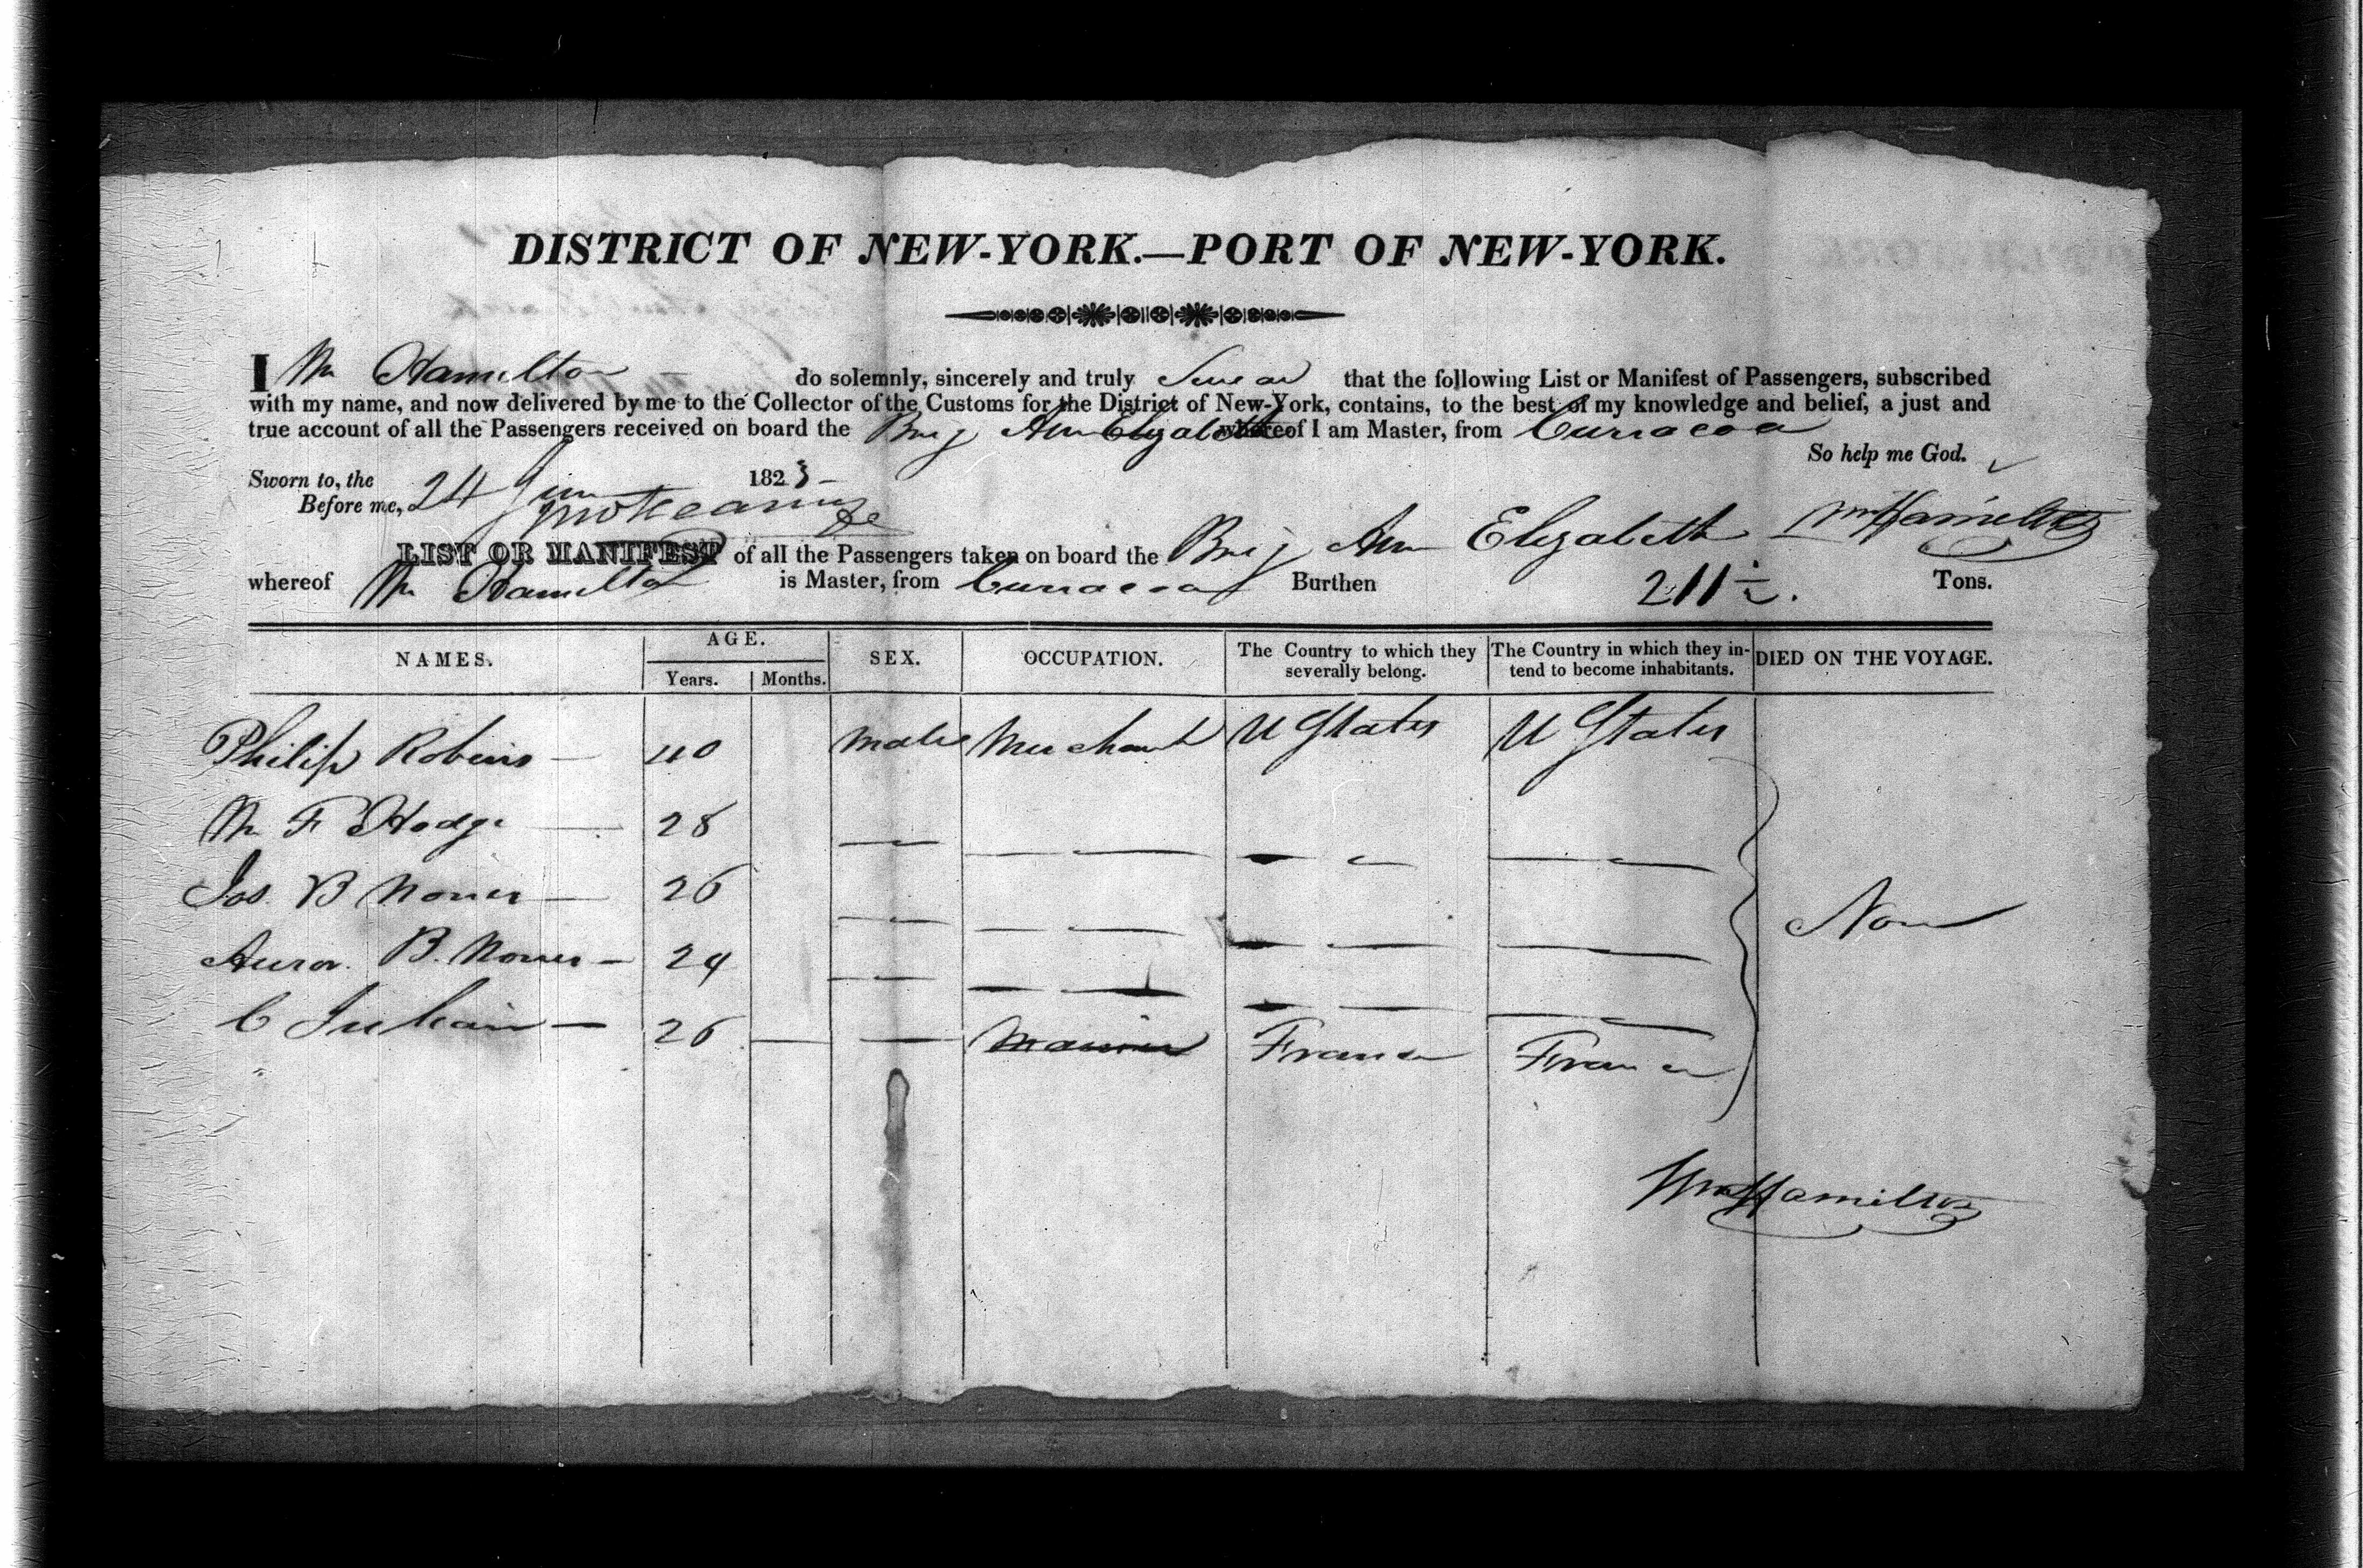 DISTRICT OF NEW-YORK.—PORT OF NEW-YORK.
I Wm Hamilton do solemnly, sincerely and truly Swear that the following List or Manifest of Passengers, subscribed
with my name, and now delivered by me to the Collector of the Customs for the District of New-York, contains, to the best of my knowledge and belief, a just and
true account of all the Passengers received on board the Brig Ann Elizabeth whereof I am Master, from Curracoa
So help me God.
Sworn to, the 24 1823
Before me,
Wm Hamilton
LIST OR MANIFEST of all the Passengers taken on board the Brig Ann Elizabeth
whereof Wm Hamilton is Master, from Curracoa Burthen 211½. Tons.
NAMES. AGE. SEX. OCCUPATION. The Country to which they severally belong. The Country in which they intend to become inhabitants. DIED ON THE VOYAGE.
Years. Months.
Philip Robins — 40 Male Merchant U States U States
Wm F Hodge — 28
Jos. B — 26
B. — 24
C Julian — 26 — — France France
None
Wm Hamilton